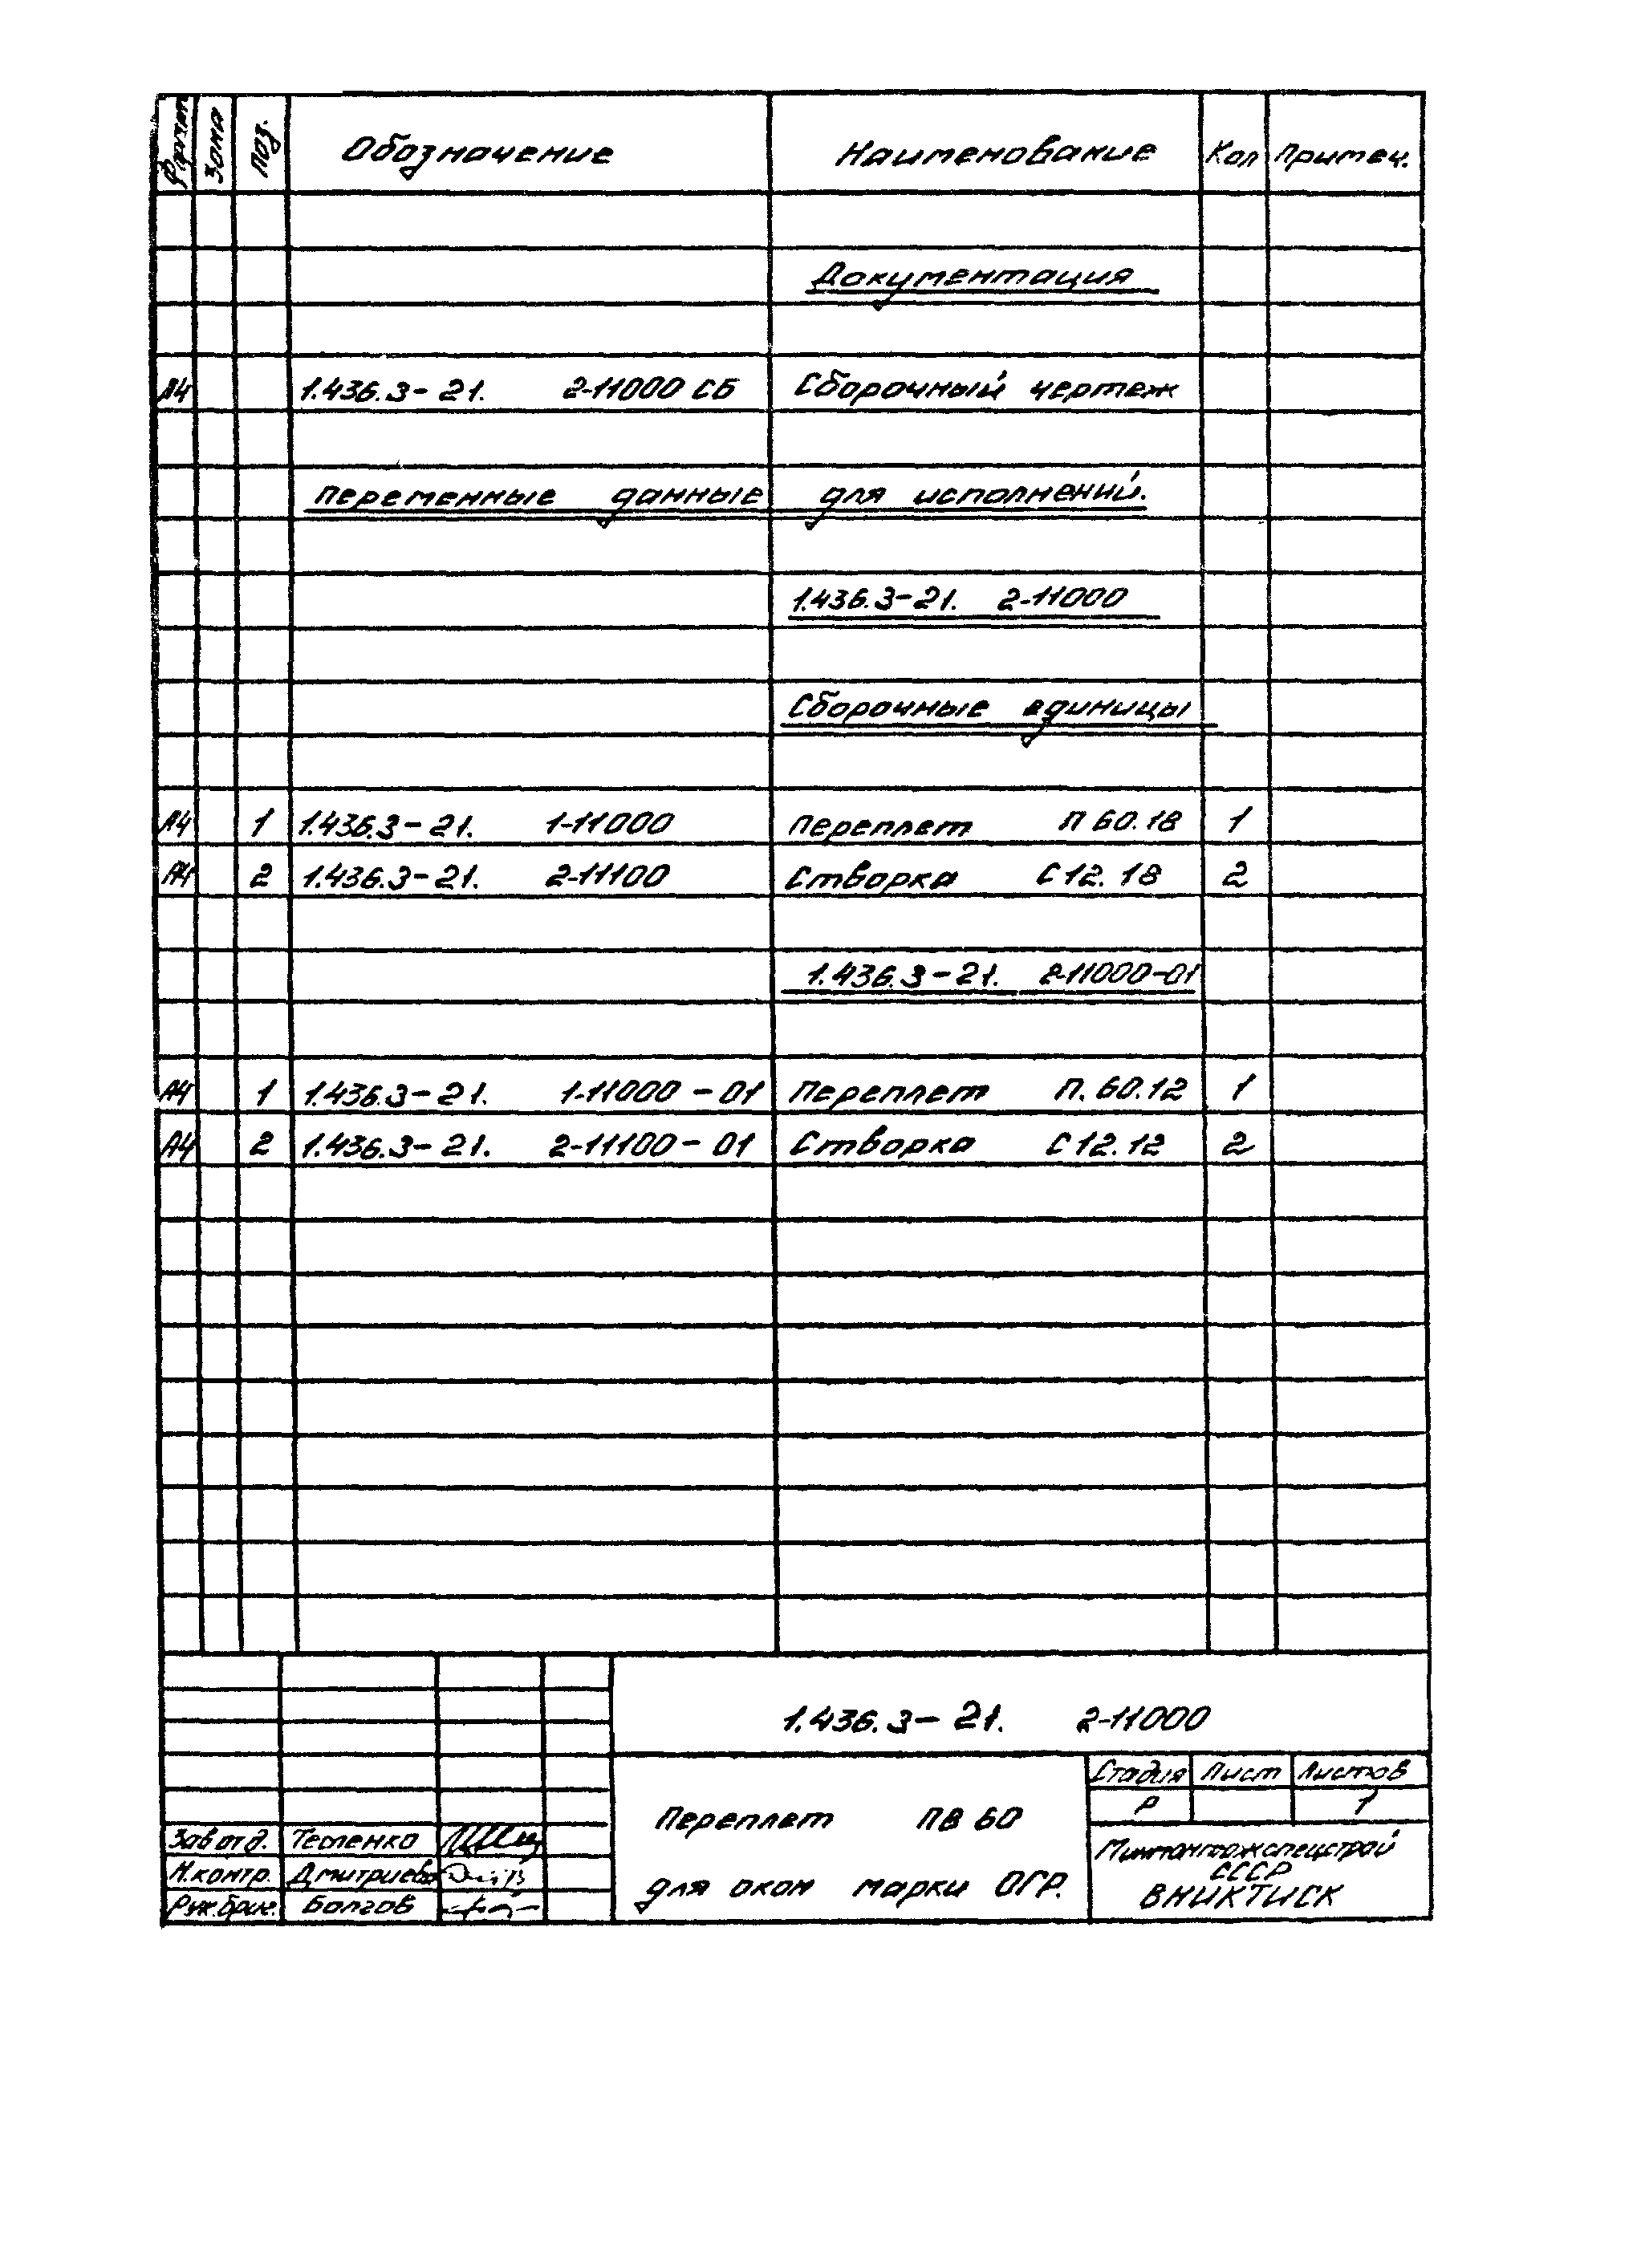 Формат Зона Поз. Обозначение Наименование Кол Примеч.
Документация
А4 1.436.3-21. 2-11000 СБ Сборочный чертеж
Переменные данные для исполнений.
1.436.3-21. 2-11000
Сборочные единицы
А4 1 1.436.3-21. 1-11000 Переплет П 60.18 1
А4 2 1.436.3-21. 2-11100 Створка С 12.18 2
1.436.3-21. 2-11000-01
А4 1 1.436.3-21. 1-11000-01 Переплет П. 60.12 1
А4 2 1.436.3-21. 2-11100-01 Створка С 12.12 2
1.436.3-21. 2-11000
Стадия Лист Листов
Р 1
Переплет ПВ 60
для окон марки ОГР.
Зав отд.
Н.контр. Дмитриева
Рук.бриг. Болгов
Минмонтажспецстрой
СССР
ВНИКТИСК